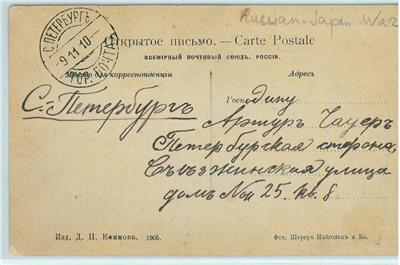 Russian-Japan War
С.ПЕТЕРБУРГЪ
9.11.10
ГОР. ПОЧТА
Открытое письмо. — Carte Postale
ВСЕМІРНЫЙ ПОЧТОВЫЙ СОЮЗЪ. РОССІЯ.
Мѣсто для корреспонденціи
Адресъ
С.-Петербургъ
Господину
Артуръ Чауеръ
Петербурская сторона,
Съѣзжинская улица
домъ No 25. кв. 8
Изд. Д. П. Ефимова. 1905.
Фот. Шереръ Набгольцъ и Ко.